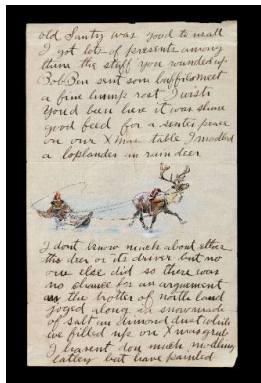 old Santy was good to us all
I got lots of presents among
them the stuff you rounded up.
Bob Ben sent som buffalo meet
a fine hump rost I wish
You'd been here it was shure
good feed for a
on our Xmas table I modled
a loplander an rain deer
I dont know much about ether
this deer or its driver but no
one else did so there was
no chance for an arguement
so the trotter of north land
joged along in snow made
of salt an dimond dust while
we filled up on Xmas grub
I havent don much modling
latley but have painted